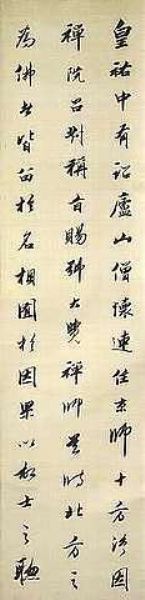 皇祐中有詔廬山僧懷連住京師十方淨因
禪院召對稱旨賜號大覺禪師是時北方之
為佛者皆留於名相囿於因果以故士之聰